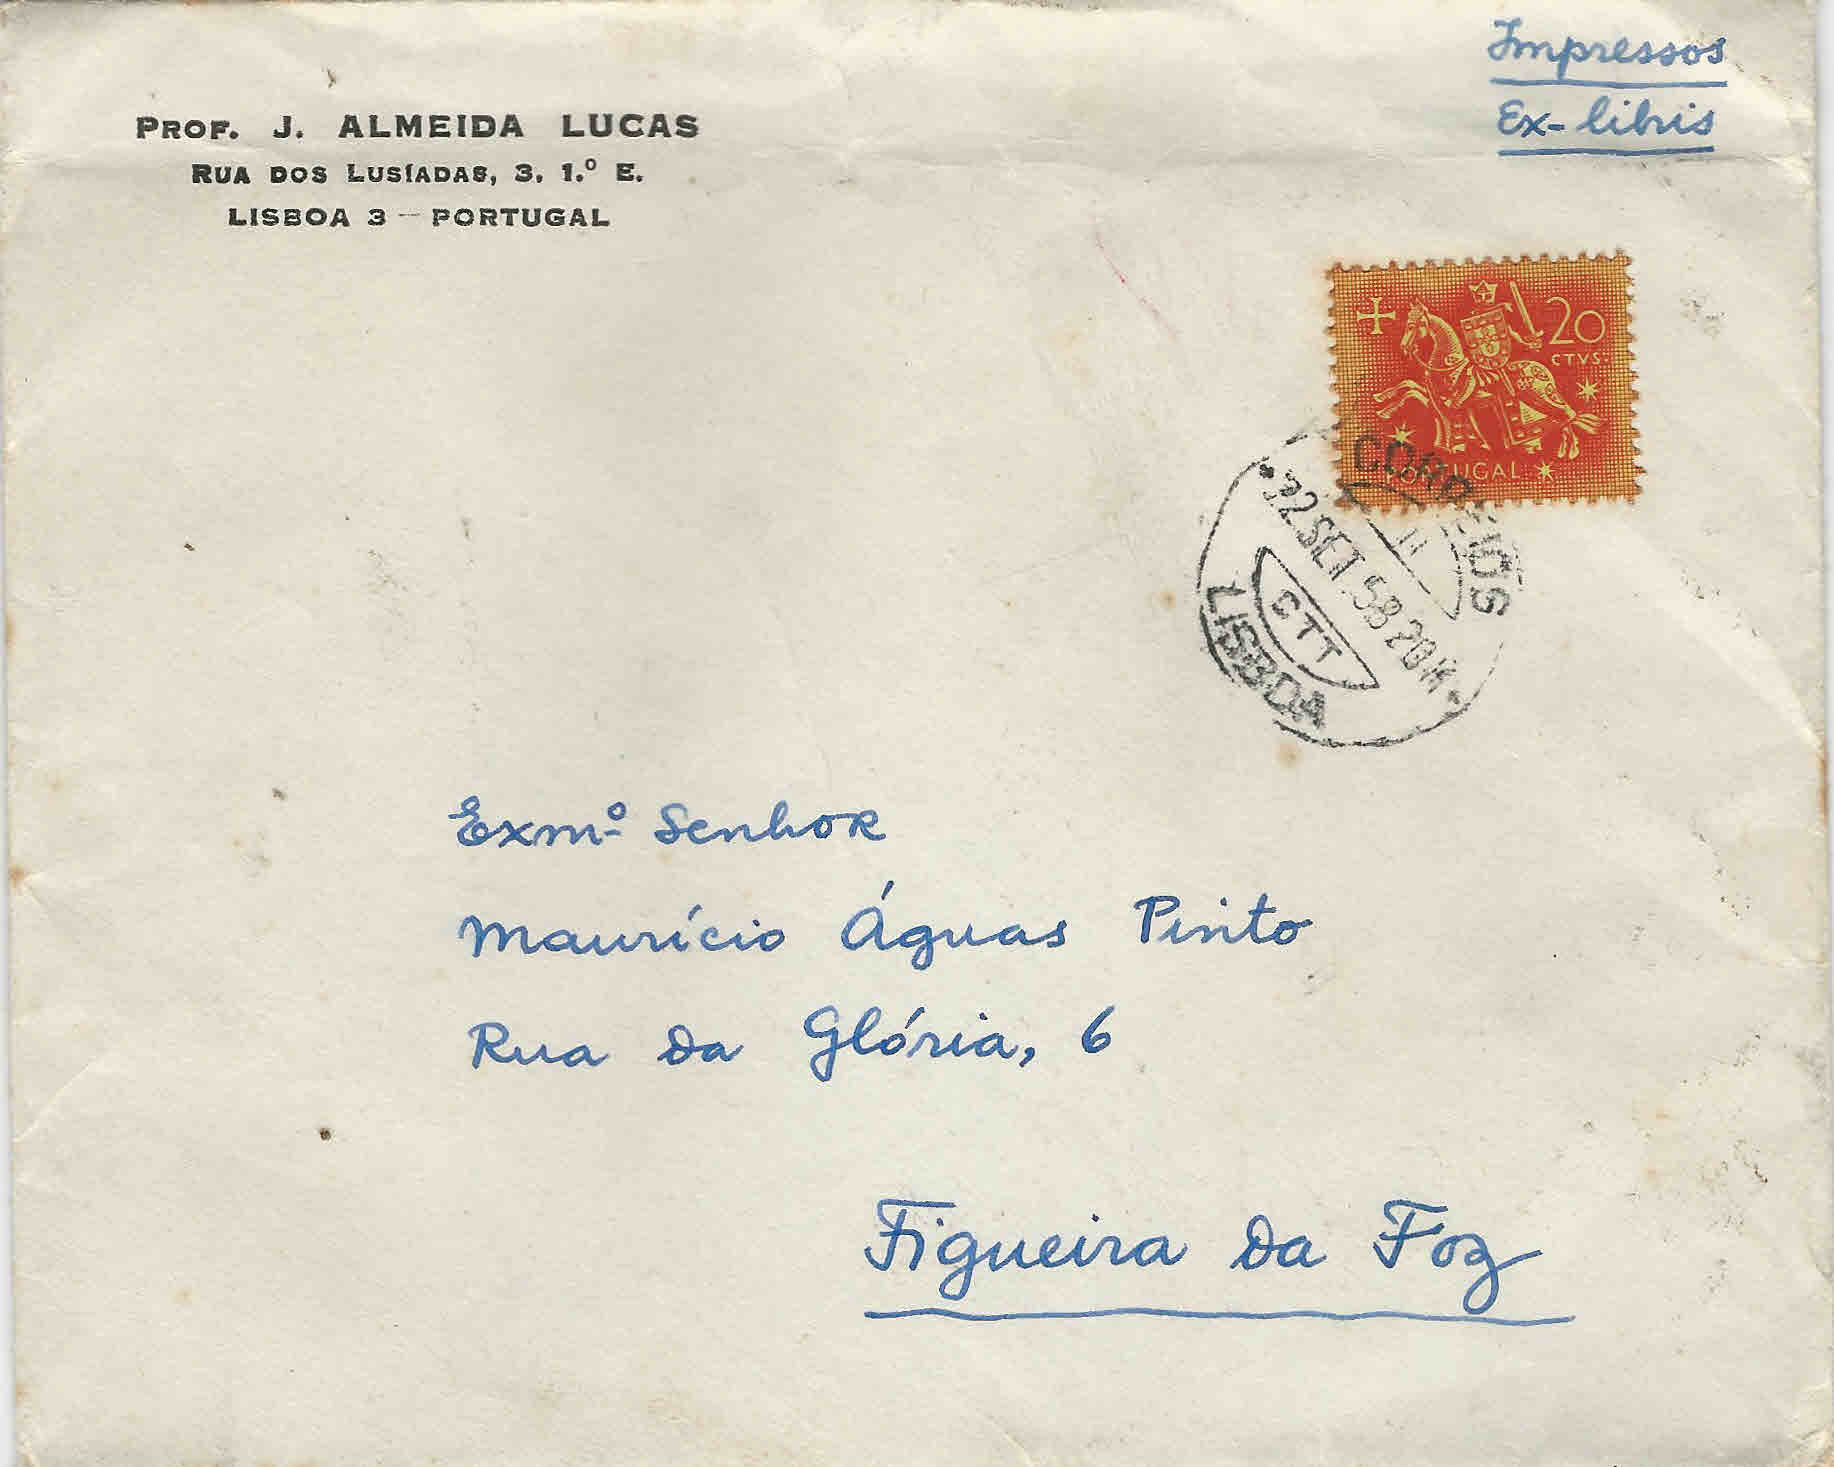 Impressos
Ex-libris
PROF. J. ALMEIDA LUCAS
RUA DOS LUSÍADAS, 3. 1.º E.
LISBOA 3 — PORTUGAL
20
CTVS.
PORTUGAL
CORREIOS
22 SET 58 20H
CTT
LISBOA
Exmº Senhor
Maurício Águas Pinto
Rua da Glória, 6
Figueira da Foz